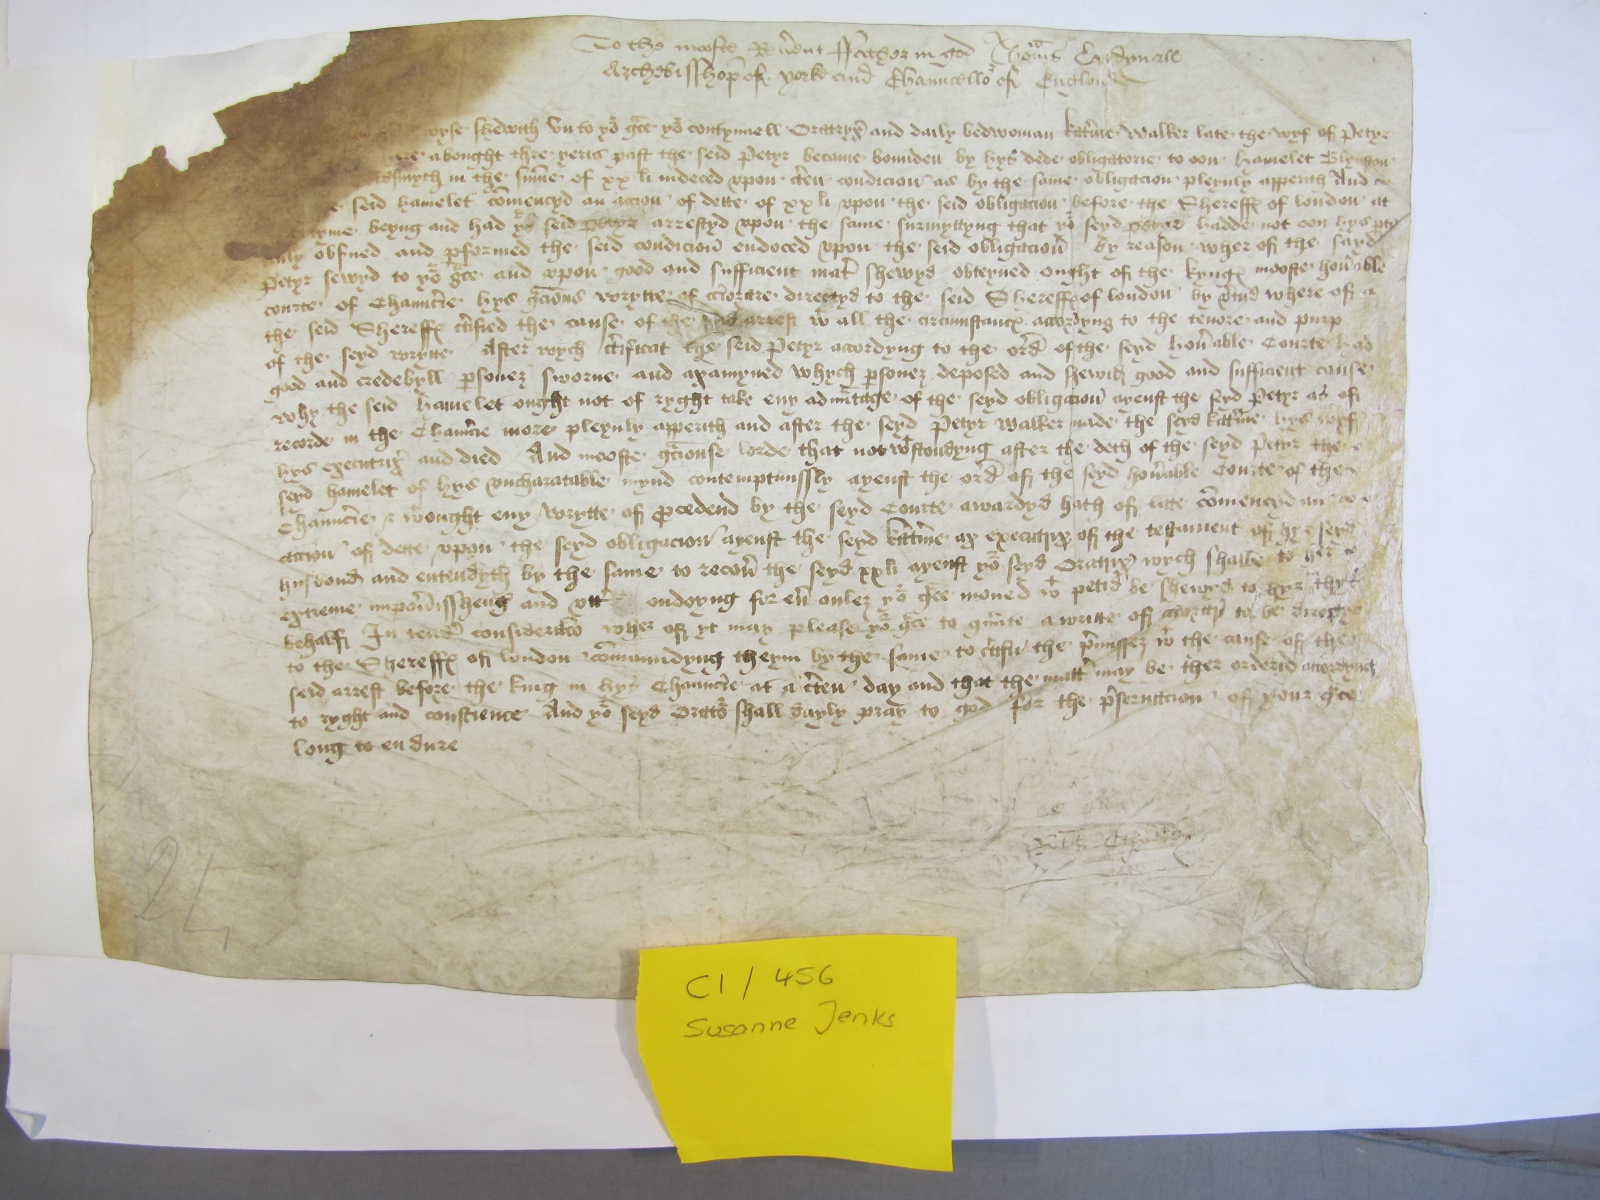 To the mooste Rev'ent ffather in god Thom's Cardynall
Archebisshop of york and Chauncello' of Englond
wyse shewith vn to yo' g'ce yo' contynuell Oratryx and daily bedwoman kat'ine Walker late the wyf of Petyr
abought thre yeris past the seid Petyr became bounden by hys dede obligatorie to oon hamelet
smyth in the sum'e of xx li indoced vpon c'ten condicion as by the same obligacion pleynly apperith And
seid hamelet com'encyd an accion of dette of xx li vpon the seid obligacion before theShereffx of london at
tyme beyng and had yo' seid Petyr arrestyd vpon the same surmyttyng that yo' seyd petyr hadde not on hys p'ty
obs'ued and p'formed the seid condicion endoced vpon the seid obligacion by reason wher of the sayd
Petyr sewyd to yo' g'ce and vpon good and sufficient mat' shewyd obteyned ought of the kyngx mooste hon'able
courte of Chaunc'ie hys g'cious wrytte of c'ciorare directyd to the seid Shereffx of london by v'tu where of
the seid Shereffx c'tified the cause of the seid arrest w' all the circumstancx accordyng to the tenore and purp
of the seyd wrytte After wych c'tificat the seid Petyr accordyng to the ord' of the seyd hon'able Courte had
good and credebyll p'sonez sworne and axamyned whych p'sonez deposed and shewid good and sufficient cause
why the seid hamelet ought not of ryght take eny aduantage of the seyd obligacion ayenst the seyd Petyr as of
recorde in the Chaunc'ie more pleynly apperith and after the seyd Petyr Walker made the seyd kat'ine hys wyf
hys executrix and died And mooste g'ciouse lorde that notw'stondyng after the deth of the seyd Petyr the
seyd hamelet of hys vncharatable mynd contemptuussly ayenst the ord' of the seyd hon'able Courte of the
Chaunc'ie & w'ought eny wrytte of p'cedend by the seyd Courte awardyd hath of late com'encyd an
accion of dette vpon the seyd obligacion ayenst the seyd kat'ine ax executrix of the testament of her seyd
husbond and entendyth by the same to recou' the seyd xx li ayenst yo' seyd Oratrix wych shalbe to her
extreme impou'issheng and vtt' ondoyng for eu' onlez yo' g'ce moued w' petie be shewyd to hyr in thys
behalf In tend' consideracio' wher of yt may please yo' g'ce to graunte a writte of c'ciorari to be directyd
to the Shereffx of london com'aundyng theym by the same to c'tifie the p'missez w' the cause of the
seid arrest before the king in hys Chaunc'ie at a c'ten day and that the matt' may be ther orderid accordyng
to ryght and conscience And yo' seyd Orato' shall dayly pray to god for the p'seruacion of your g'ce
long to endure
C1 / 456
Susanne Jenks